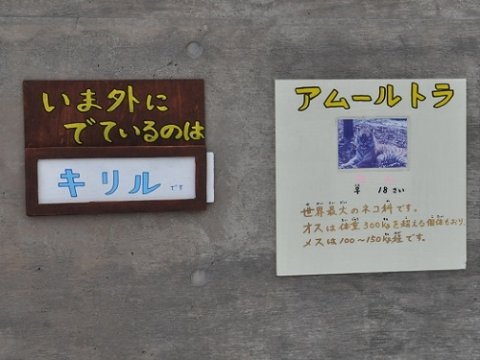 いま外に
でているのは
キリル です
アムールトラ
18さい
世界最大のネコ科です。
オスは体重300kgを超える個体もおり、
メスは100〜150kg程です。